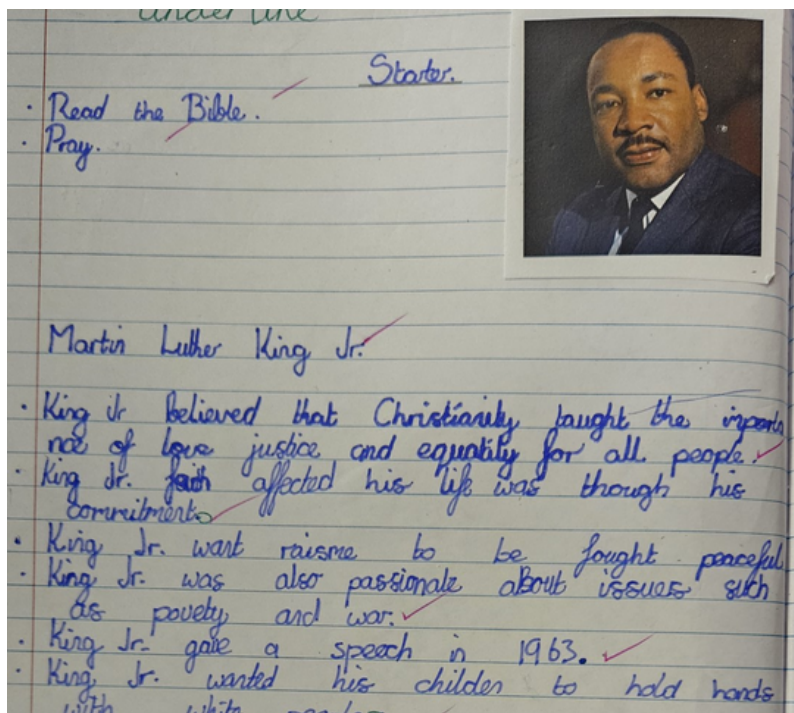 underline
Starter.
· Read the Bible.
· Pray.
Martin Luther King Jr.
· King Jr believed that Christianity taught the
nce of love justice and equality for all people.
· King Jr. faith affected his life was though his
commitment.
· King Jr. want raisme to be fought peaceful
· King Jr. was also passionate about issues such
as povety and war.
· King Jr. gave a speech in 1963.
· King Jr. wanted his childen to hold hands
with white